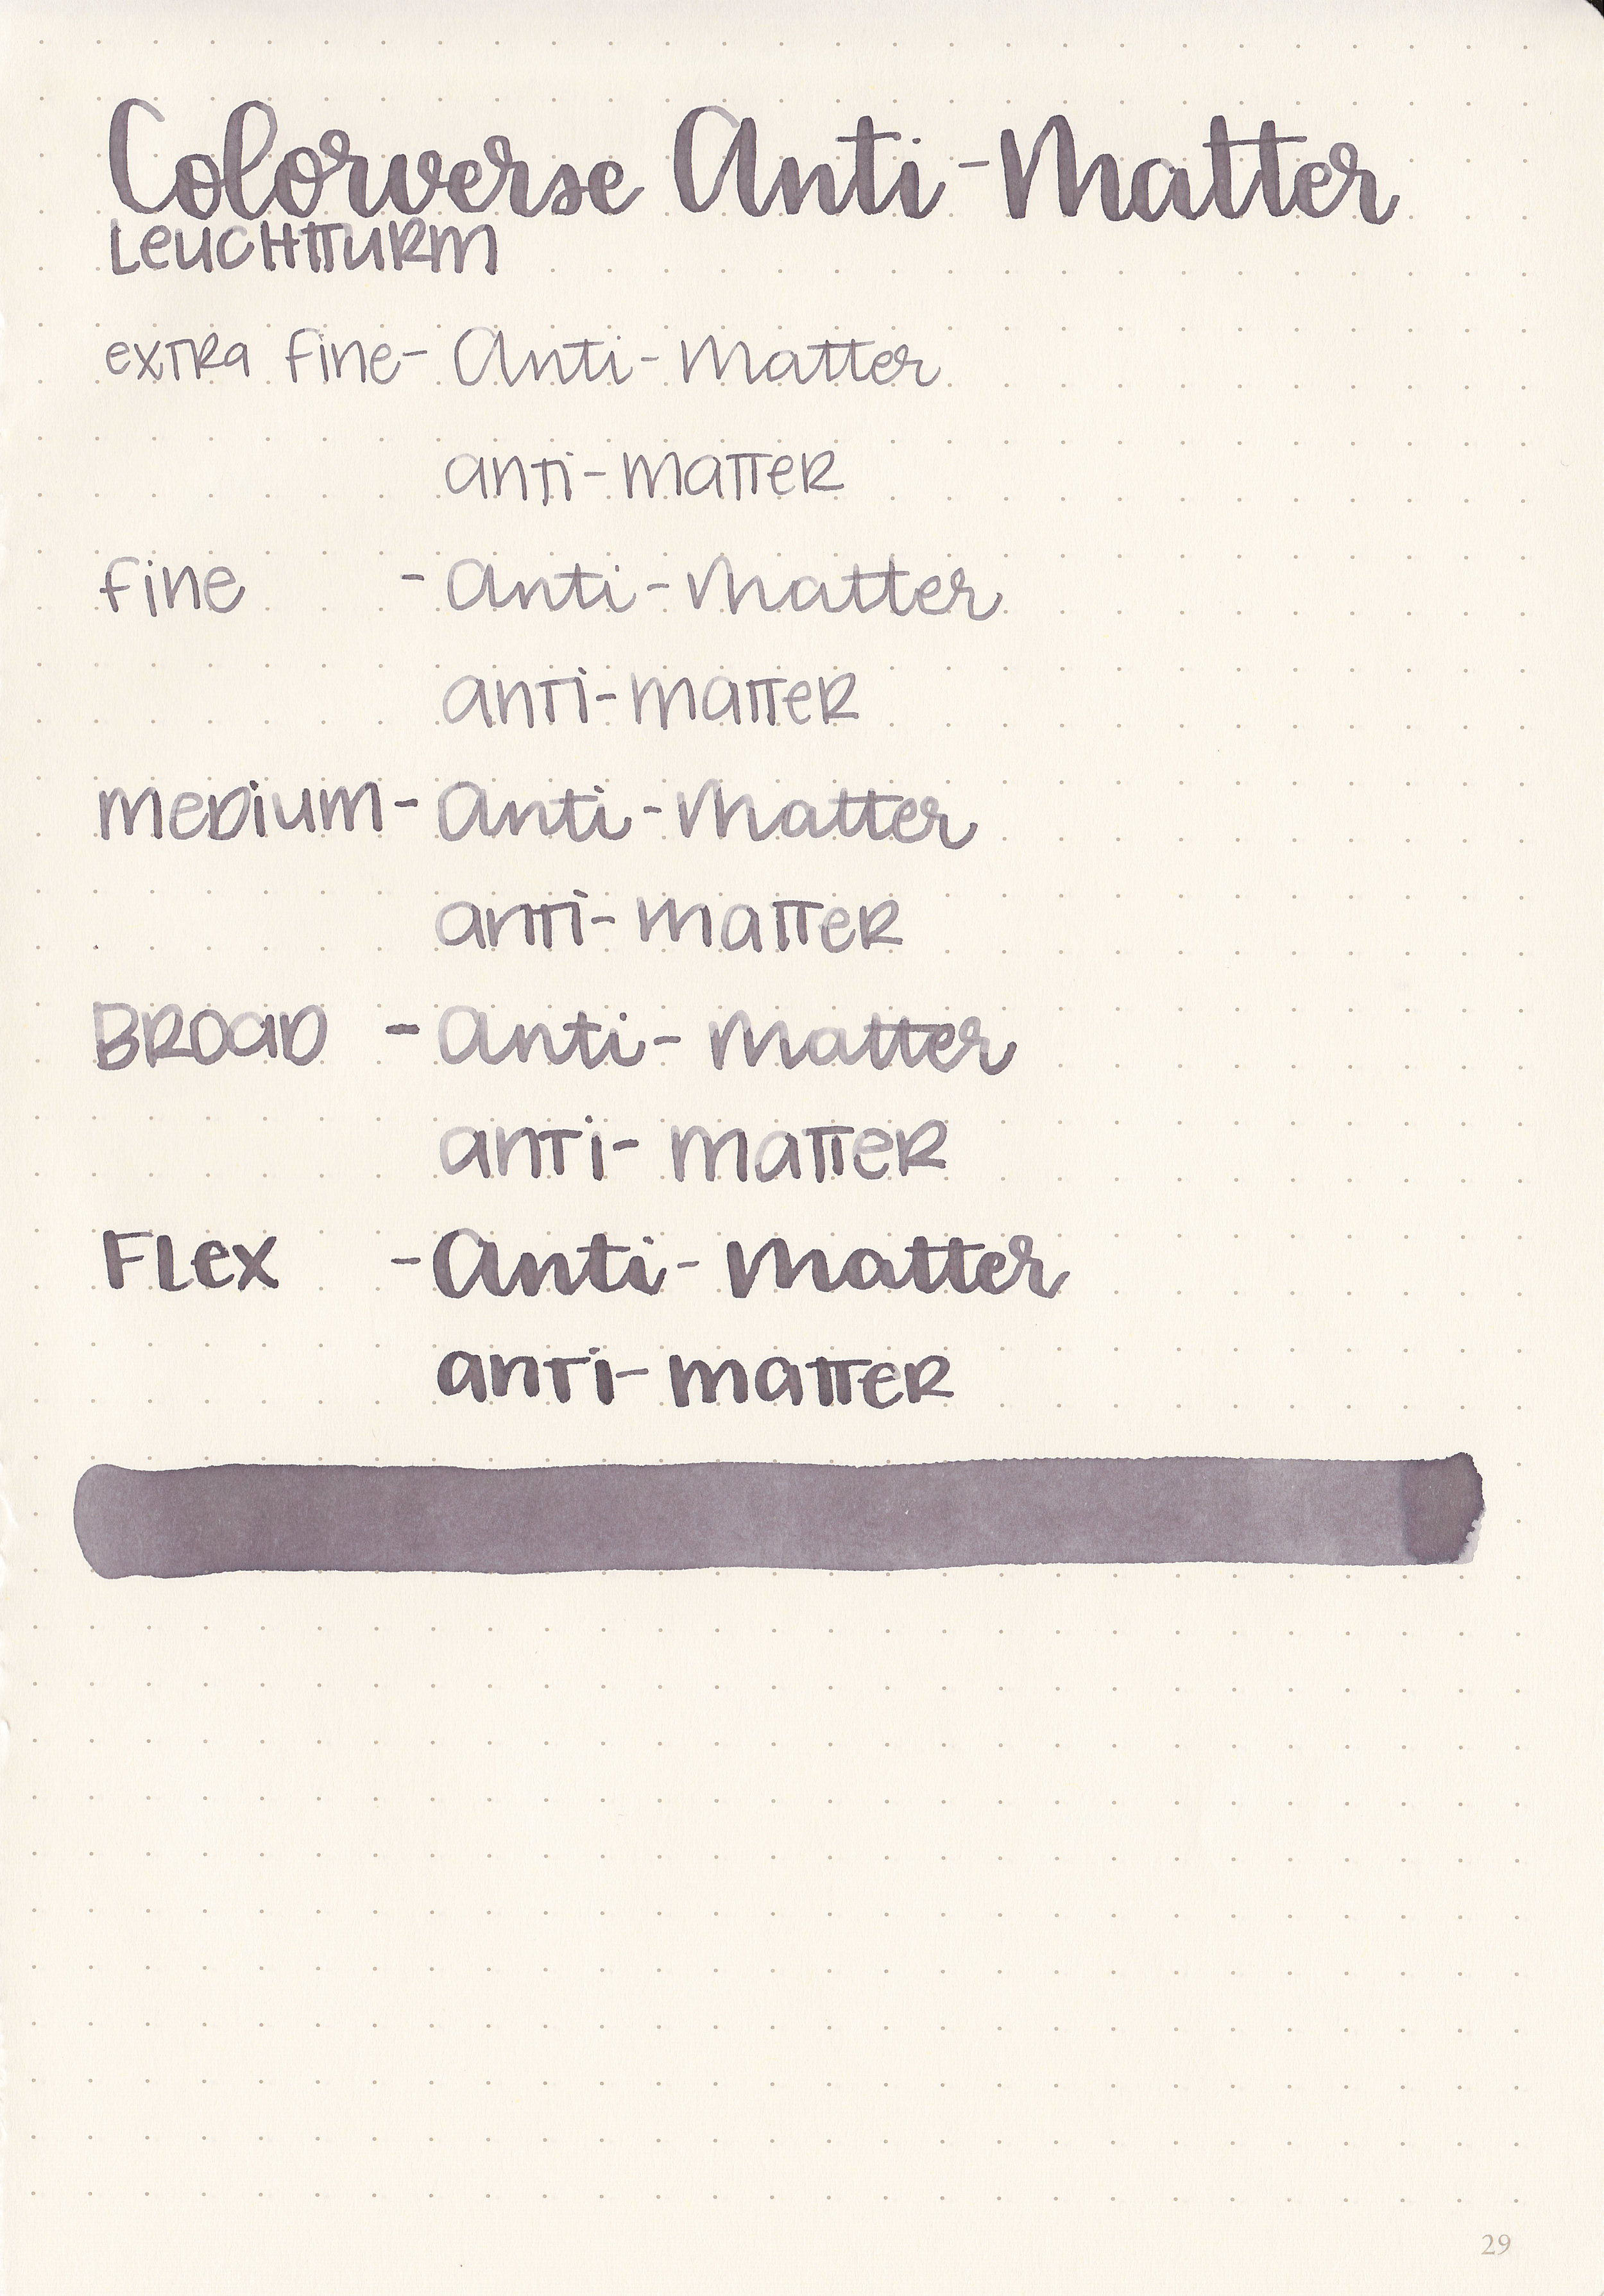 Colorverse Anti-Matter
LEUCHTTURM
extra fine- Anti-Matter
anti-matter
fine - Anti-Matter
anti-matter
medium- Anti-Matter
anti-matter
Broad - Anti-Matter
anti-matter
Flex - Anti-Matter
anti-matter
29